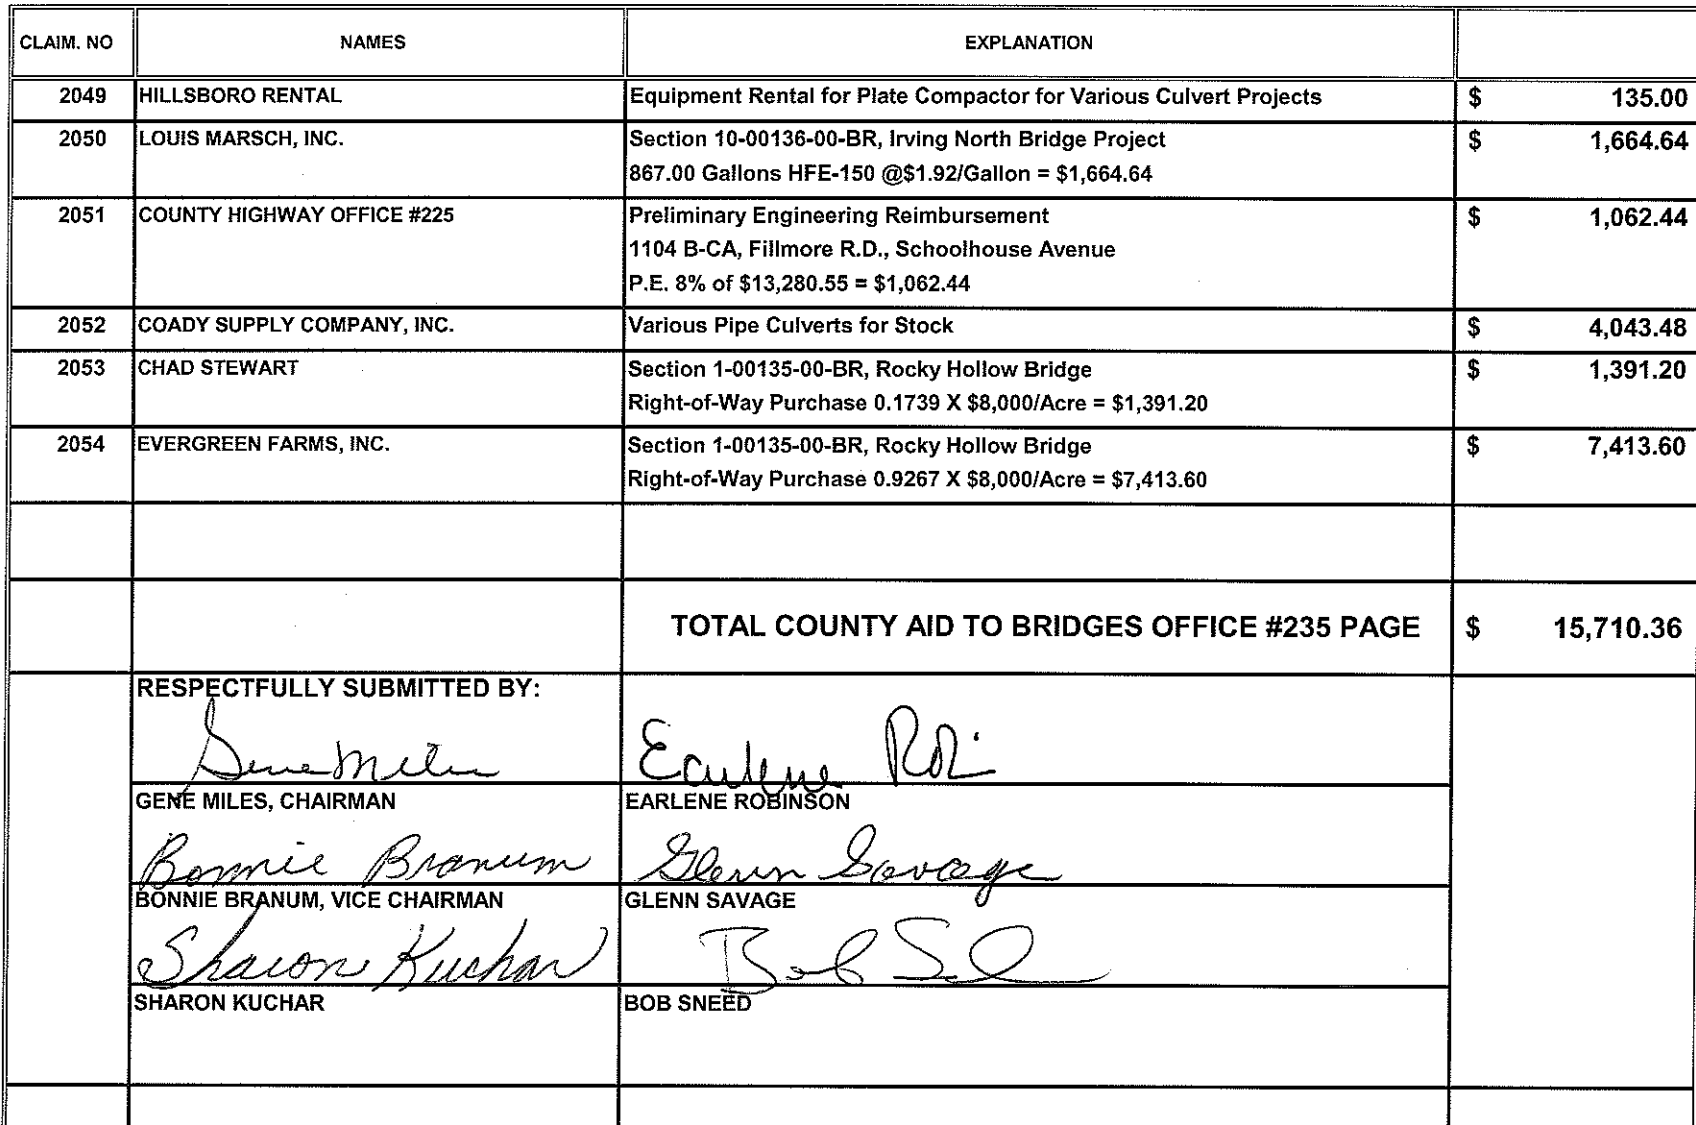 CLAIM. NO NAMES EXPLANATION
2049 HILLSBORO RENTAL Equipment Rental for Plate Compactor for Various Culvert Projects $ 135.00
2050 LOUIS MARSCH, INC. Section 10-00136-00-BR, Irving North Bridge Project $ 1,664.64
867.00 Gallons HFE-150 @$1.92/Gallon = $1,664.64
2051 COUNTY HIGHWAY OFFICE #225 Preliminary Engineering Reimbursement $ 1,062.44
1104 B-CA, Fillmore R.D., Schoolhouse Avenue
P.E. 8% of $13,280.55 = $1,062.44
2052 COADY SUPPLY COMPANY, INC. Various Pipe Culverts for Stock $ 4,043.48
2053 CHAD STEWART Section 1-00135-00-BR, Rocky Hollow Bridge $ 1,391.20
Right-of-Way Purchase 0.1739 X $8,000/Acre = $1,391.20
2054 EVERGREEN FARMS, INC. Section 1-00135-00-BR, Rocky Hollow Bridge $ 7,413.60
Right-of-Way Purchase 0.9267 X $8,000/Acre = $7,413.60
TOTAL COUNTY AID TO BRIDGES OFFICE #235 PAGE $ 15,710.36
RESPECTFULLY SUBMITTED BY:
Gene Miles Earlene
GENE MILES, CHAIRMAN EARLENE ROBINSON
Bonnie Branum Glenn Savage
BONNIE BRANUM, VICE CHAIRMAN GLENN SAVAGE
Sharon Kuchar Bob
SHARON KUCHAR BOB SNEED